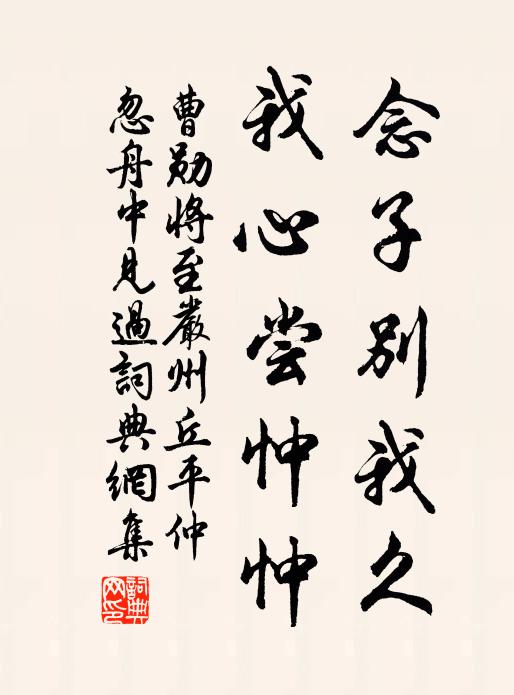 念子别我久
我心尝忡忡
曹勋將至嚴州丘平仲
忽舟中見過詞典網集
詞典网印